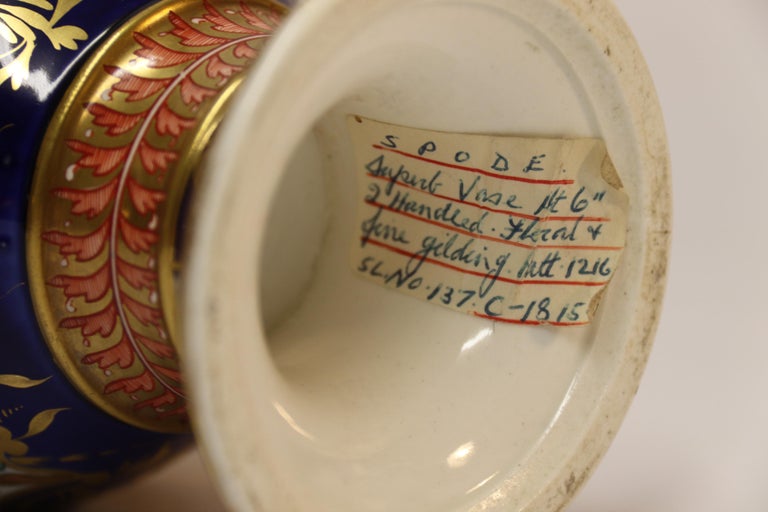 SPODE.
Superb Vase Ht 6"
2 Handled. Floral &
fine gilding. Patt. 1216
SL.NO. 137. C-1815